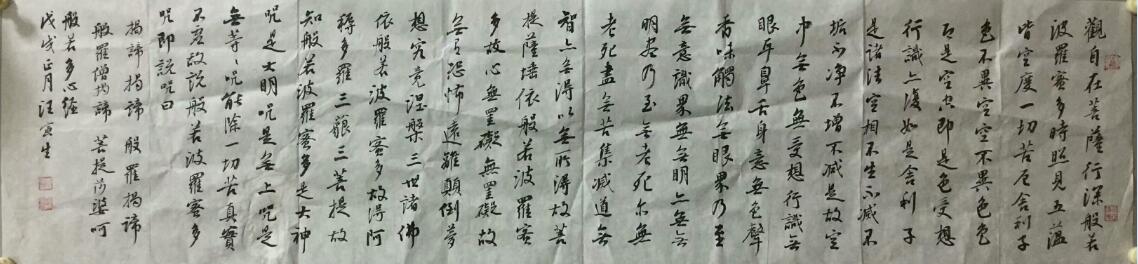 觀自在菩薩行深般若
波羅蜜多時照見五蘊
皆空度一切苦厄舍利子
色不異空空不異色色
即是空空即是色受想
行識亦復如是舍利子
是諸法空相不生不滅不
垢不淨不增不減是故空
中無色無受想行識無
眼耳鼻舌身意無色聲
香味觸法無眼界乃至
無意識界無無明亦無無
明盡乃至無老死亦無
老死盡無苦集滅道無
智亦無得以無所得故菩
提薩埵依般若波羅蜜
多故心無罣礙無罣礙故
無有恐怖遠離顛倒夢
想究竟涅槃三世諸佛
依般若波羅蜜多故得阿
耨多羅三藐三菩提故
知般若波羅蜜多是大神
咒是大明咒是無上咒是
無等々咒能除一切苦真實
不虛故說般若波羅蜜多
咒即說咒曰
揭諦揭諦 般羅揭諦
般羅僧揭諦 菩提沙婆呵
般若多心經
戊戌正月汪寅生